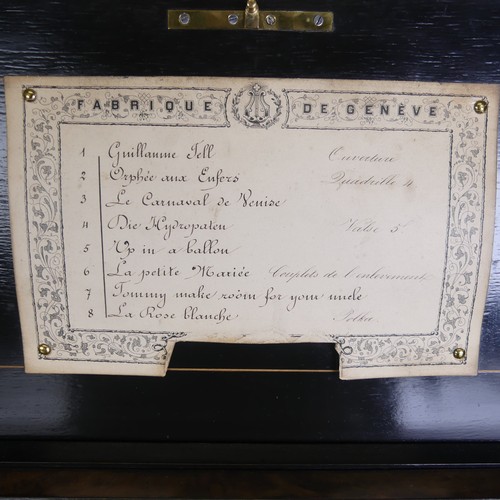 FABRIQUE DE GENÈVE
1 Guillaume Tell Ouverture
2 Orphée aux Enfers Quadrille 4
3 Le Carnaval de Venise
4 Die Hydropaten Valse 5
5 Up in a ballon
6 La petite Mariée Couplets de l'enlèvement
7 Tommy make room for your uncle
8 La Rose blanche Polka